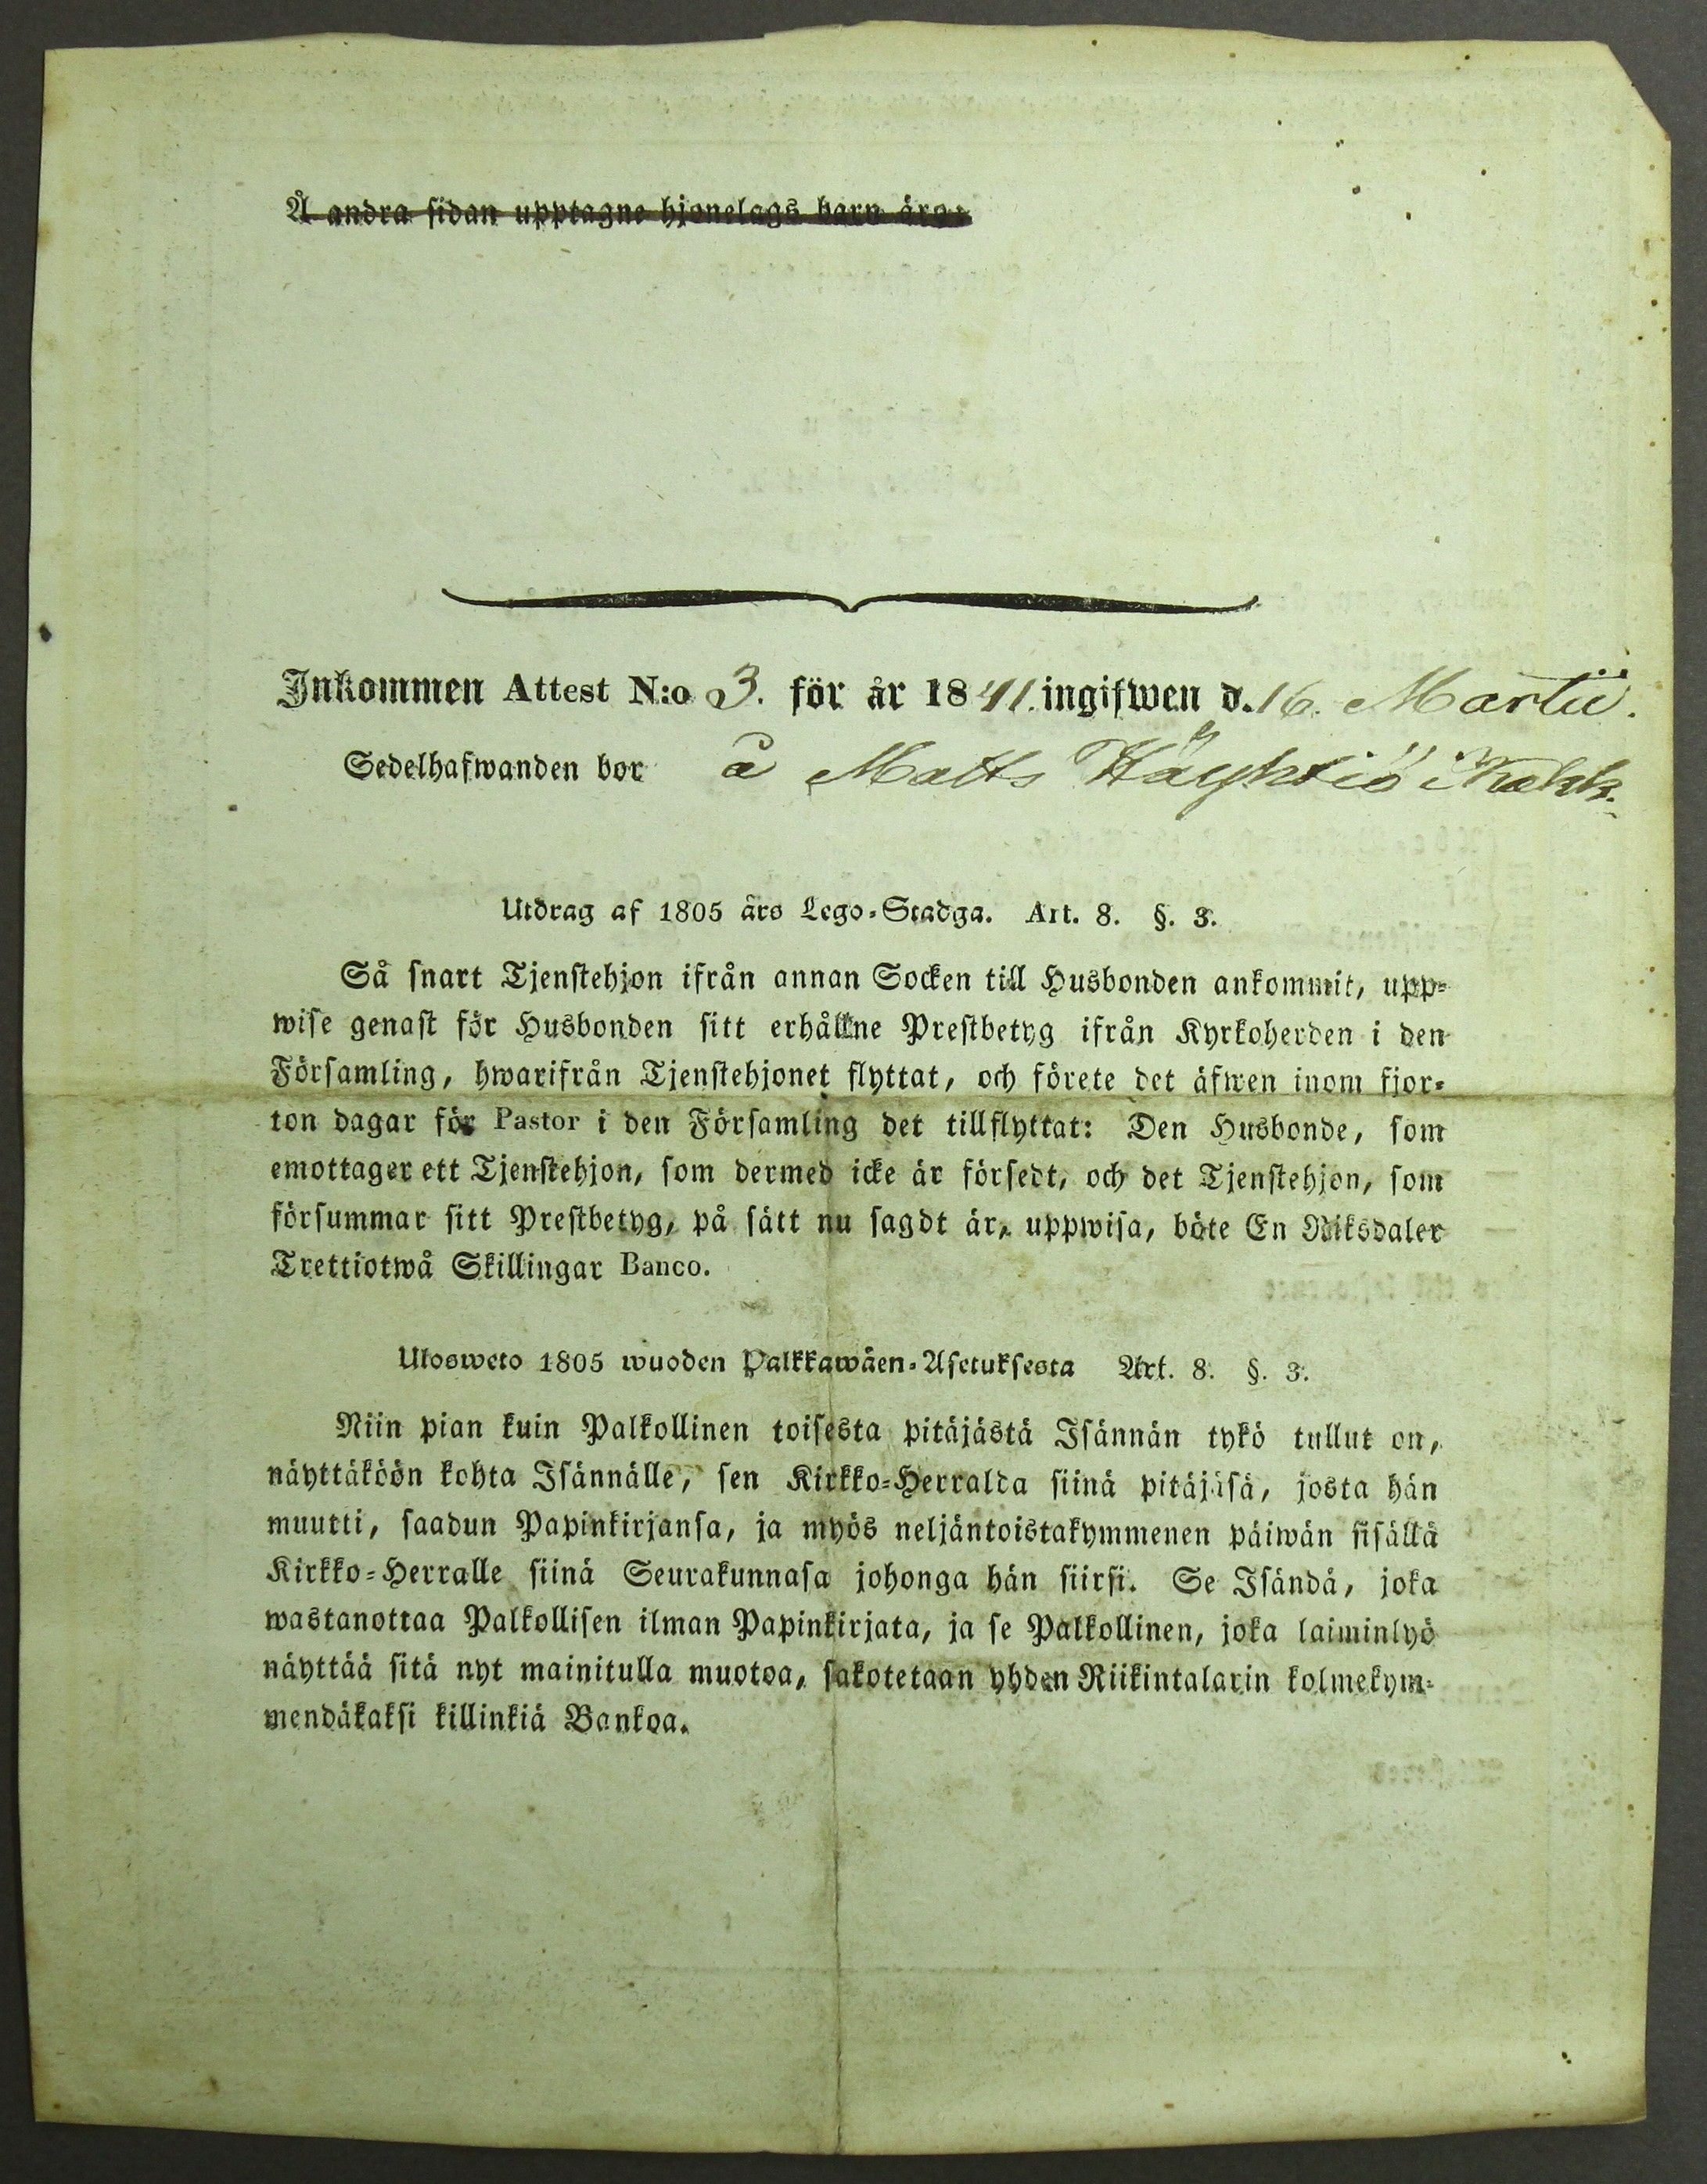 Å andra sidan upptagne hjonelags barn äro:
Inkommen Attest N:o 3. för år 1841. ingifwen d. 16. Martii.
Sedelhafwanden bor å Matts Häyhtiö i
Utdrag af 1805 års Lego-Stadga. Art. 8. §. 3.
Så snart Tjenstehjon ifrån annan Socken till Husbonden ankommit, upp-
wise genast för Husbonden sitt erhållne Prestbetyg ifrån Kyrkoherden i den
Församling, hwarifrån Tjenstehjonet flyttat, och förete det äfwen inom fjor-
ton dagar för Pastor i den Församling det tillflyttat: Den Husbonde, som
emottager ett Tjenstehjon, som dermed icke är försedt, och det Tjenstehjon, som
försummar sitt Prestbetyg, på sätt nu sagdt är, uppwisa, böte En Riksdaler
Trettiotwå Skillingar Banco.
Ulosweto 1805 wuoden Palkkawäen-Asetuksesta Art. 8. §. 3.
Niin pian kuin Palkollinen toisesta pitäjästä Isännän tykö tullut on,
näyttäköön kohta Isännälle, sen Kirkko-Herralda siinä pitäjäsä, josta hän
muutti, saadun Papinkirjansa, ja myös neljäntoistakymmenen päiwän sisällä
Kirkko-Herralle siinä Seurakunnasa johonga hän siirsi. Se Isändä, joka
wastanottaa Palkollisen ilman Papinkirjata, ja se Palkollinen, joka laiminlyö
näyttää sitä nyt mainitulla muotoa, sakotetaan yhden Riikintalarin kolmekym-
mendäkaksi killinkiä Bankoa.